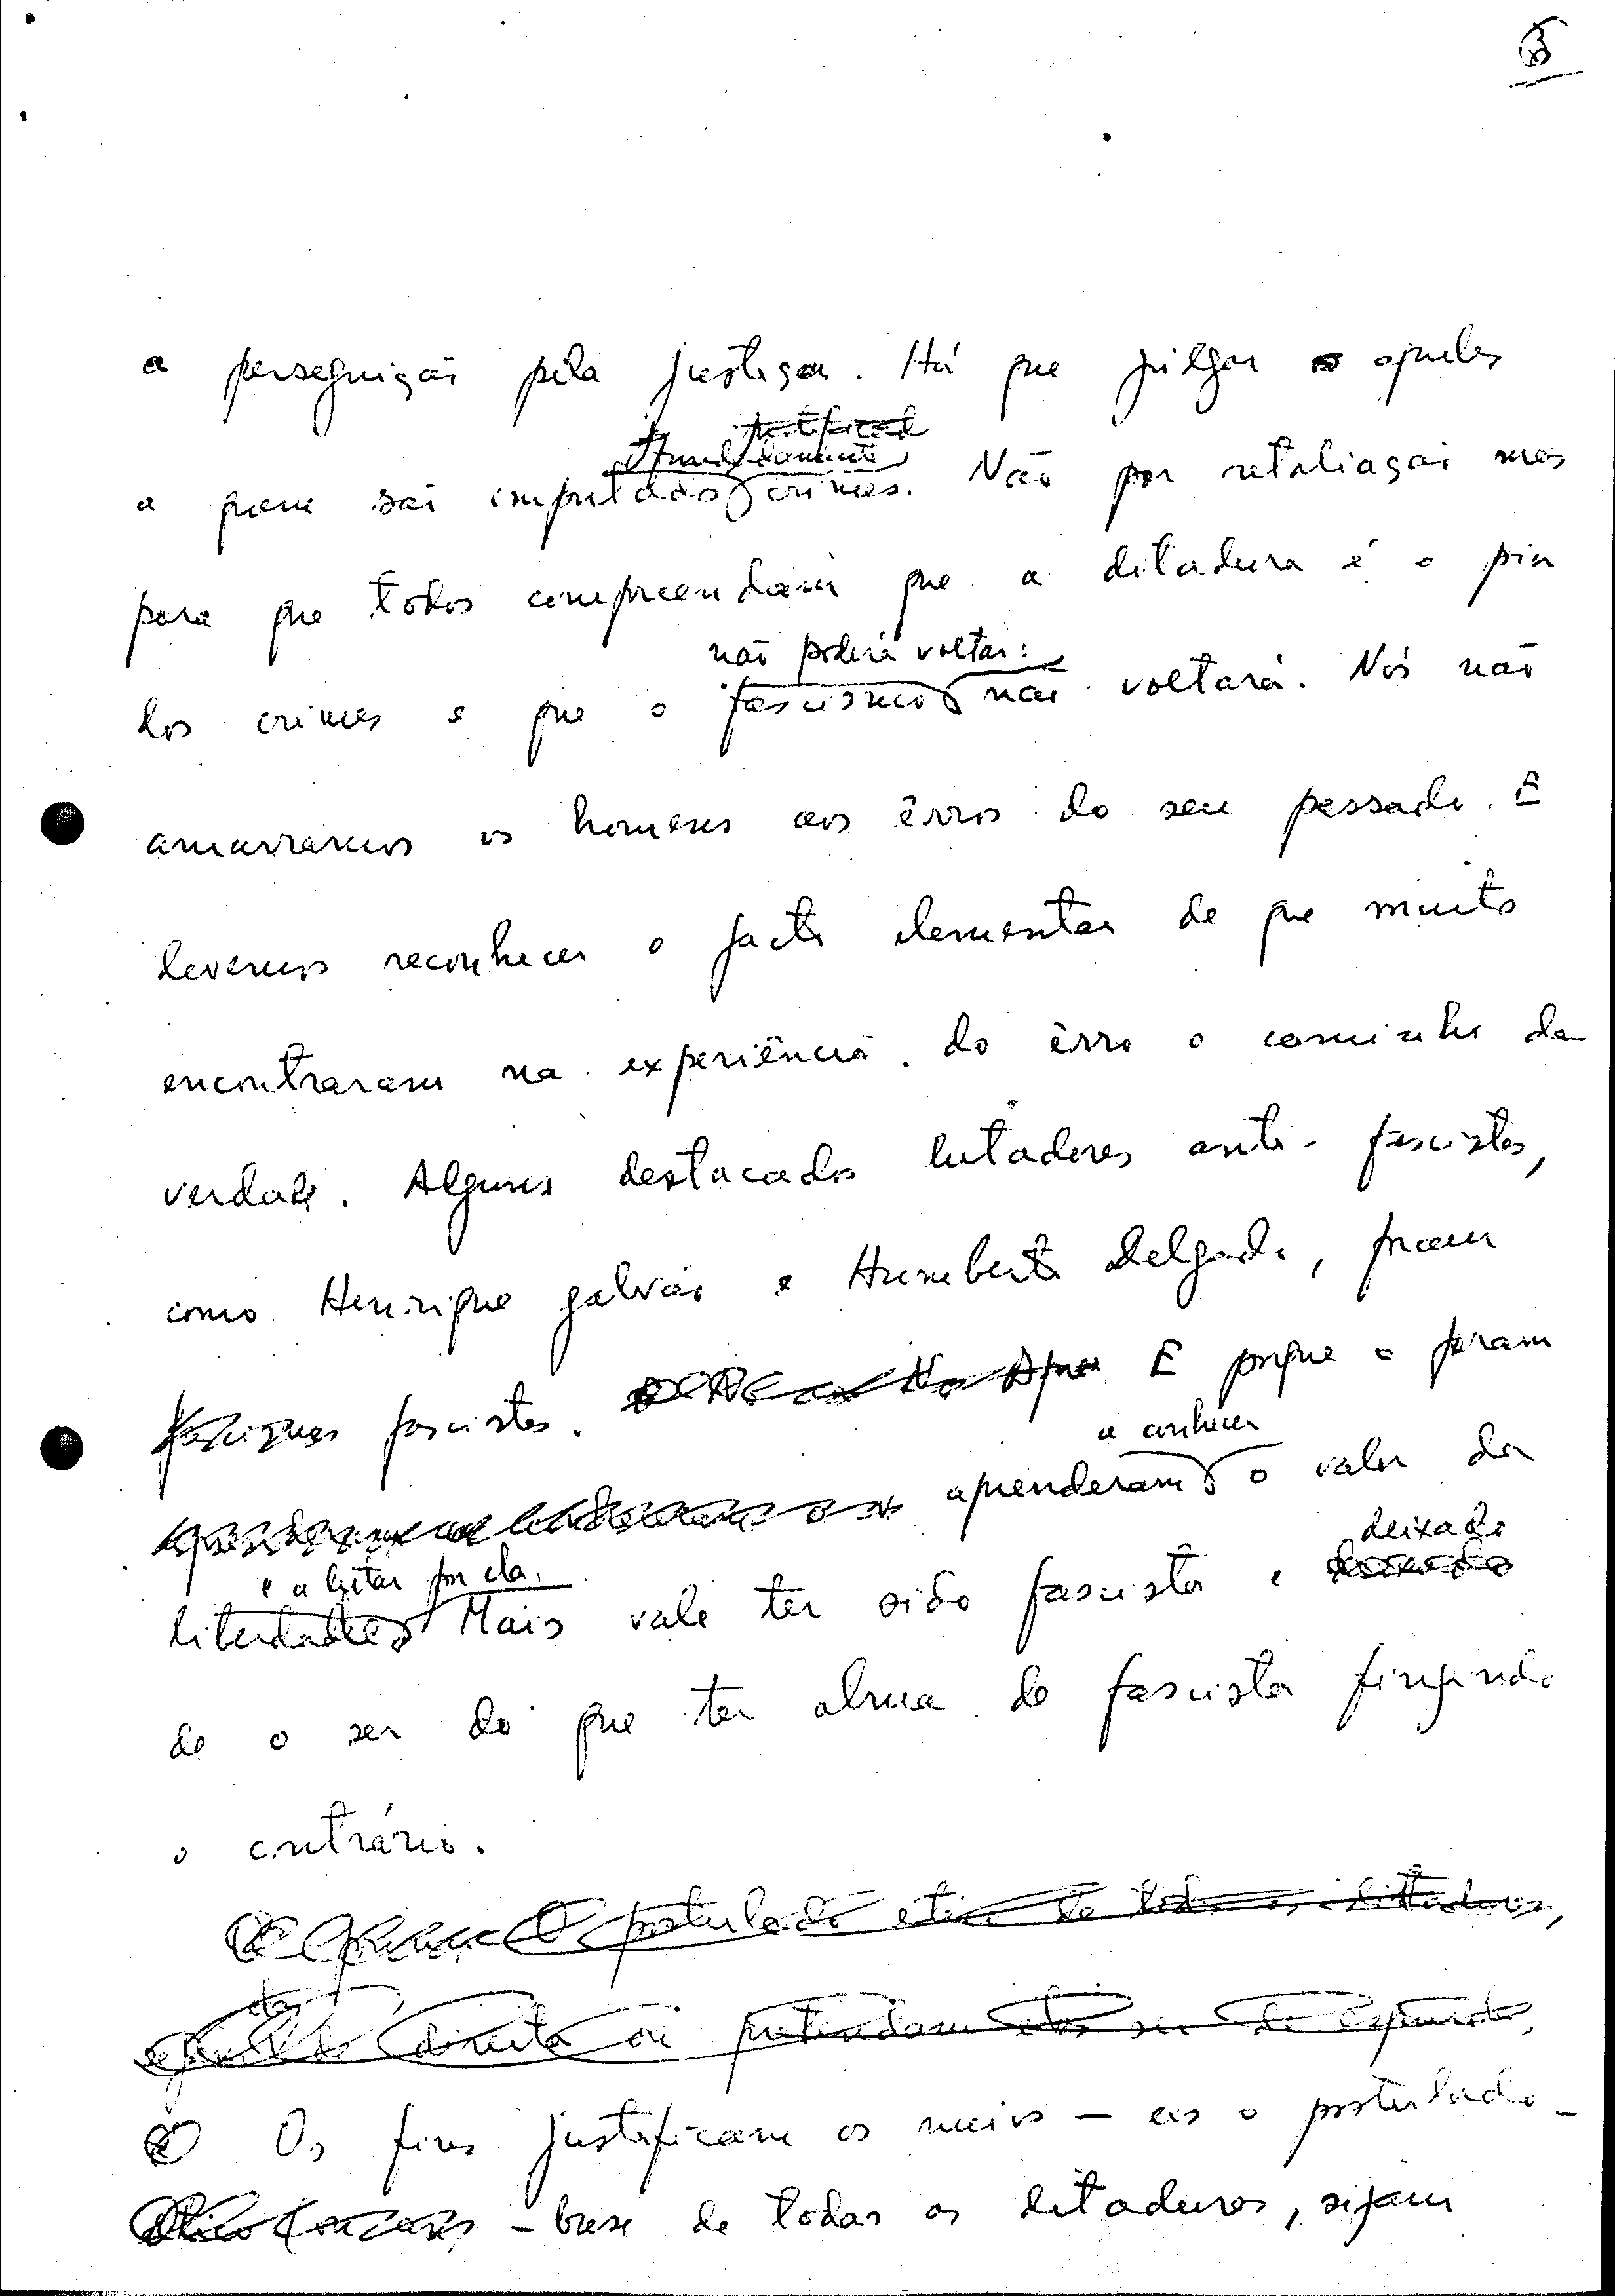 3
a perseguição pela justiça. Há que julgar aqueles
justificad
fundadamente
a quem são imputados crimes. Não por retaliação mas
para que todos compreendam que a ditadura é o pior
não poderá voltar:
dos crimes e que o fascismo não voltará. Nós não
amarramos os homens aos êrros do seu passado. E
devemos reconhecer o facto elementar de que muitos
encontraram na experiência do êrro o caminho da
verdade. Alguns destacados lutadores anti-fascistas,
como Henrique galvão e Humberto Delgado, foram
fascistas. E porque o foram
a conhecer
aprenderam o valor da
e a lutar por ela. deixado
liberdade Mais vale ter sido fascista e
de o ser do que ter alma de fascista fingindo
o contrário.
O postulado etico de todas as ditaduras,
direita ou pretendam elas ser de esquerda,
Os fins justificam os meios — eis o postulado-
-base de todas as ditaduras, sejam